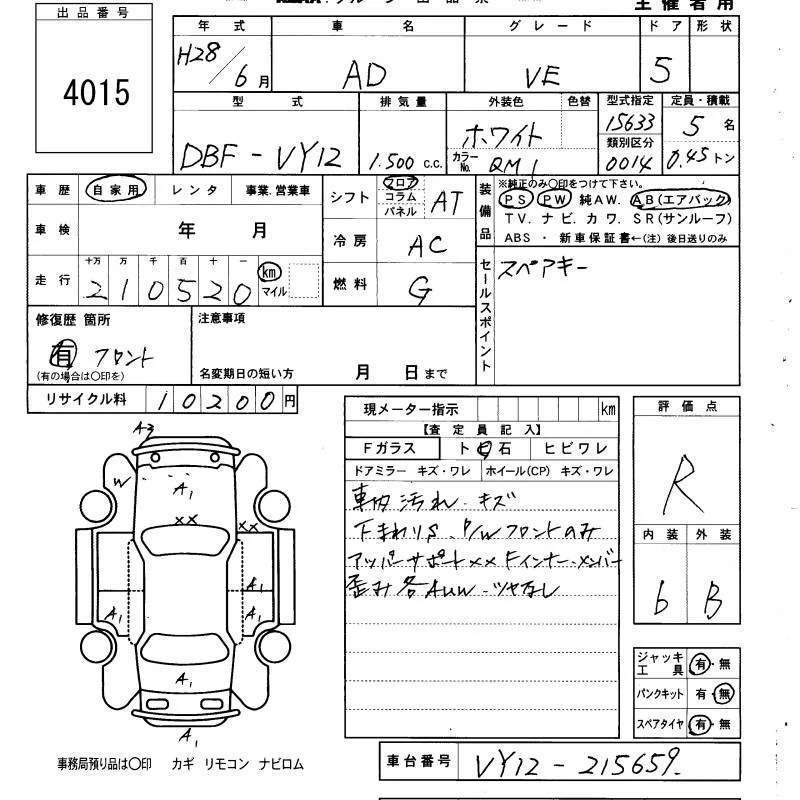 出品番号
4015
主催者用
年式 車名 グレード ドア 形状
H28/6月 AD VE 5
型式 排気量 外装色 色替 型式指定 定員・積載
DBF-VY12 1.500 c.c. ホワイト 15633 5名
カラーNo. QM1 類別区分 0014 0.45トン
車歴 自家用 レンタ 事業.営業車
シフト フロア コラム パネル AT
装備品 ※純正のみ〇印をつけて下さい。
PS PW 純AW. AB(エアバック)
TV. ナビ. カワ. SR(サンルーフ)
ABS ・ 新車保証書←(注) 後日送りのみ
車検 年 月
冷房 AC
走行 十万 万 千 百 十 一
210520 km マイル
燃料 G
セールスポイント スペアキー
修復歴 箇所
有 フロント
(有の場合は〇印を)
注意事項
名変期日の短い方 月 日まで
リサイクル料 10200円
現メーター指示 km
【査定員記入】
Fガラス トビ石 ヒビワレ
ドアミラー キズ・ワレ ホイール(CP) キズ・ワレ
車内汚れ.キズ
下まわりS. P/Wフロントのみ
アッパーサポートxx Fインナー.メンバー
歪み 各AUW.ツヤなし
評価点
R
内装 外装
b B
A2
W A1
xx xx
A1
A1 A1
A1
A1
ジャッキ工具 有・無
パンクキット 有・無
スペアタイヤ 有・無
事務局預り品は〇印 カギ リモコン ナビロム
車台番号 VY12-215659.